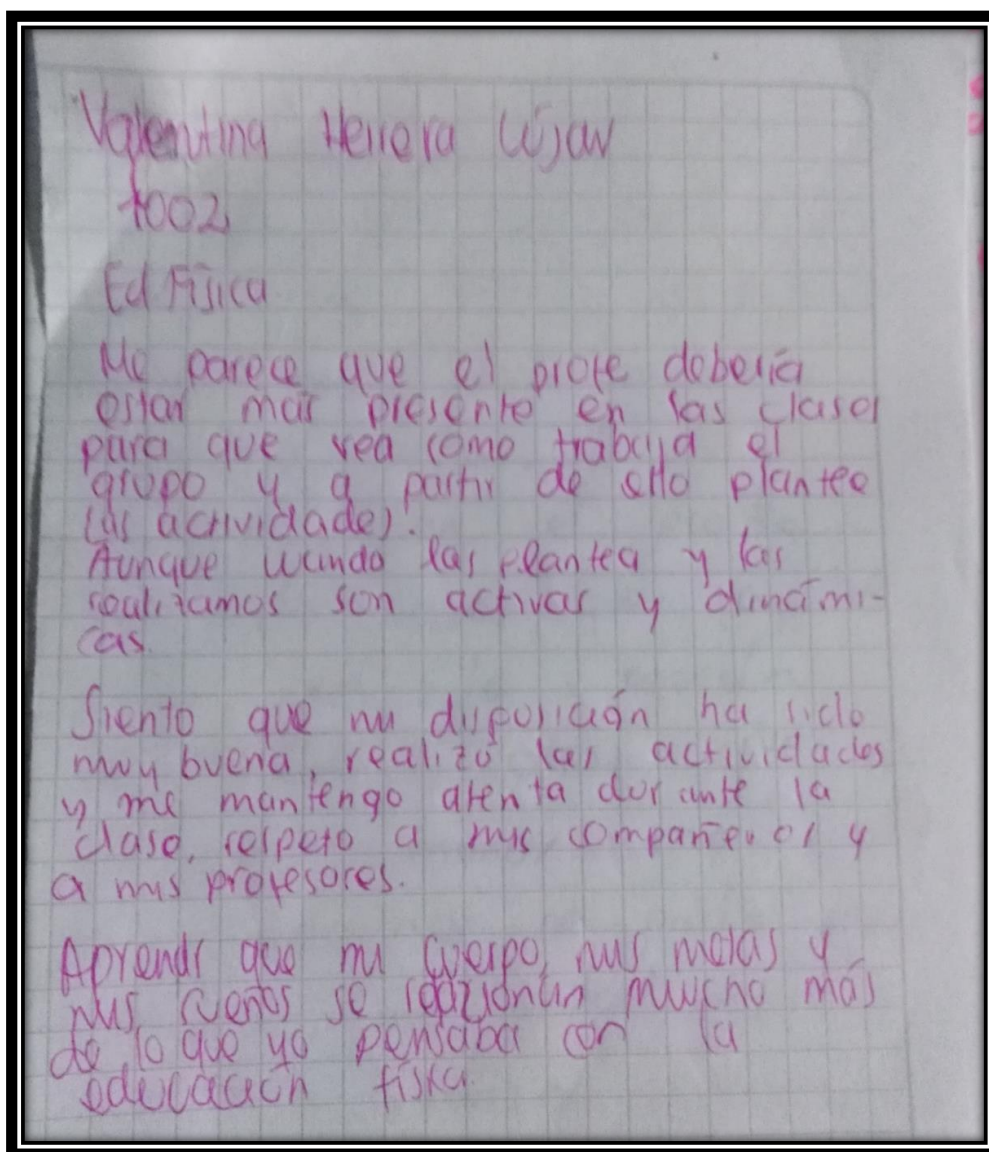 Valentina Herrera Lújar
1002
Ed Física
Me parece que el profe debería
estar más presente en las clases
para que vea como trabaja el
grupo y a partir de ello plantee
las actividades.
Aunque cuando las plantea y las
realizamos son activas y dinámi-
cas.
Siento que mi disposición ha sido
muy buena, realizo las actividades
y me mantengo atenta durante la
clase, respeto a mis compañeros y
a mis profesores.
Aprendí que mi cuerpo, mis metas y
mis sueños se relacionan mucho más
de lo que yo pensaba con la
educación física.